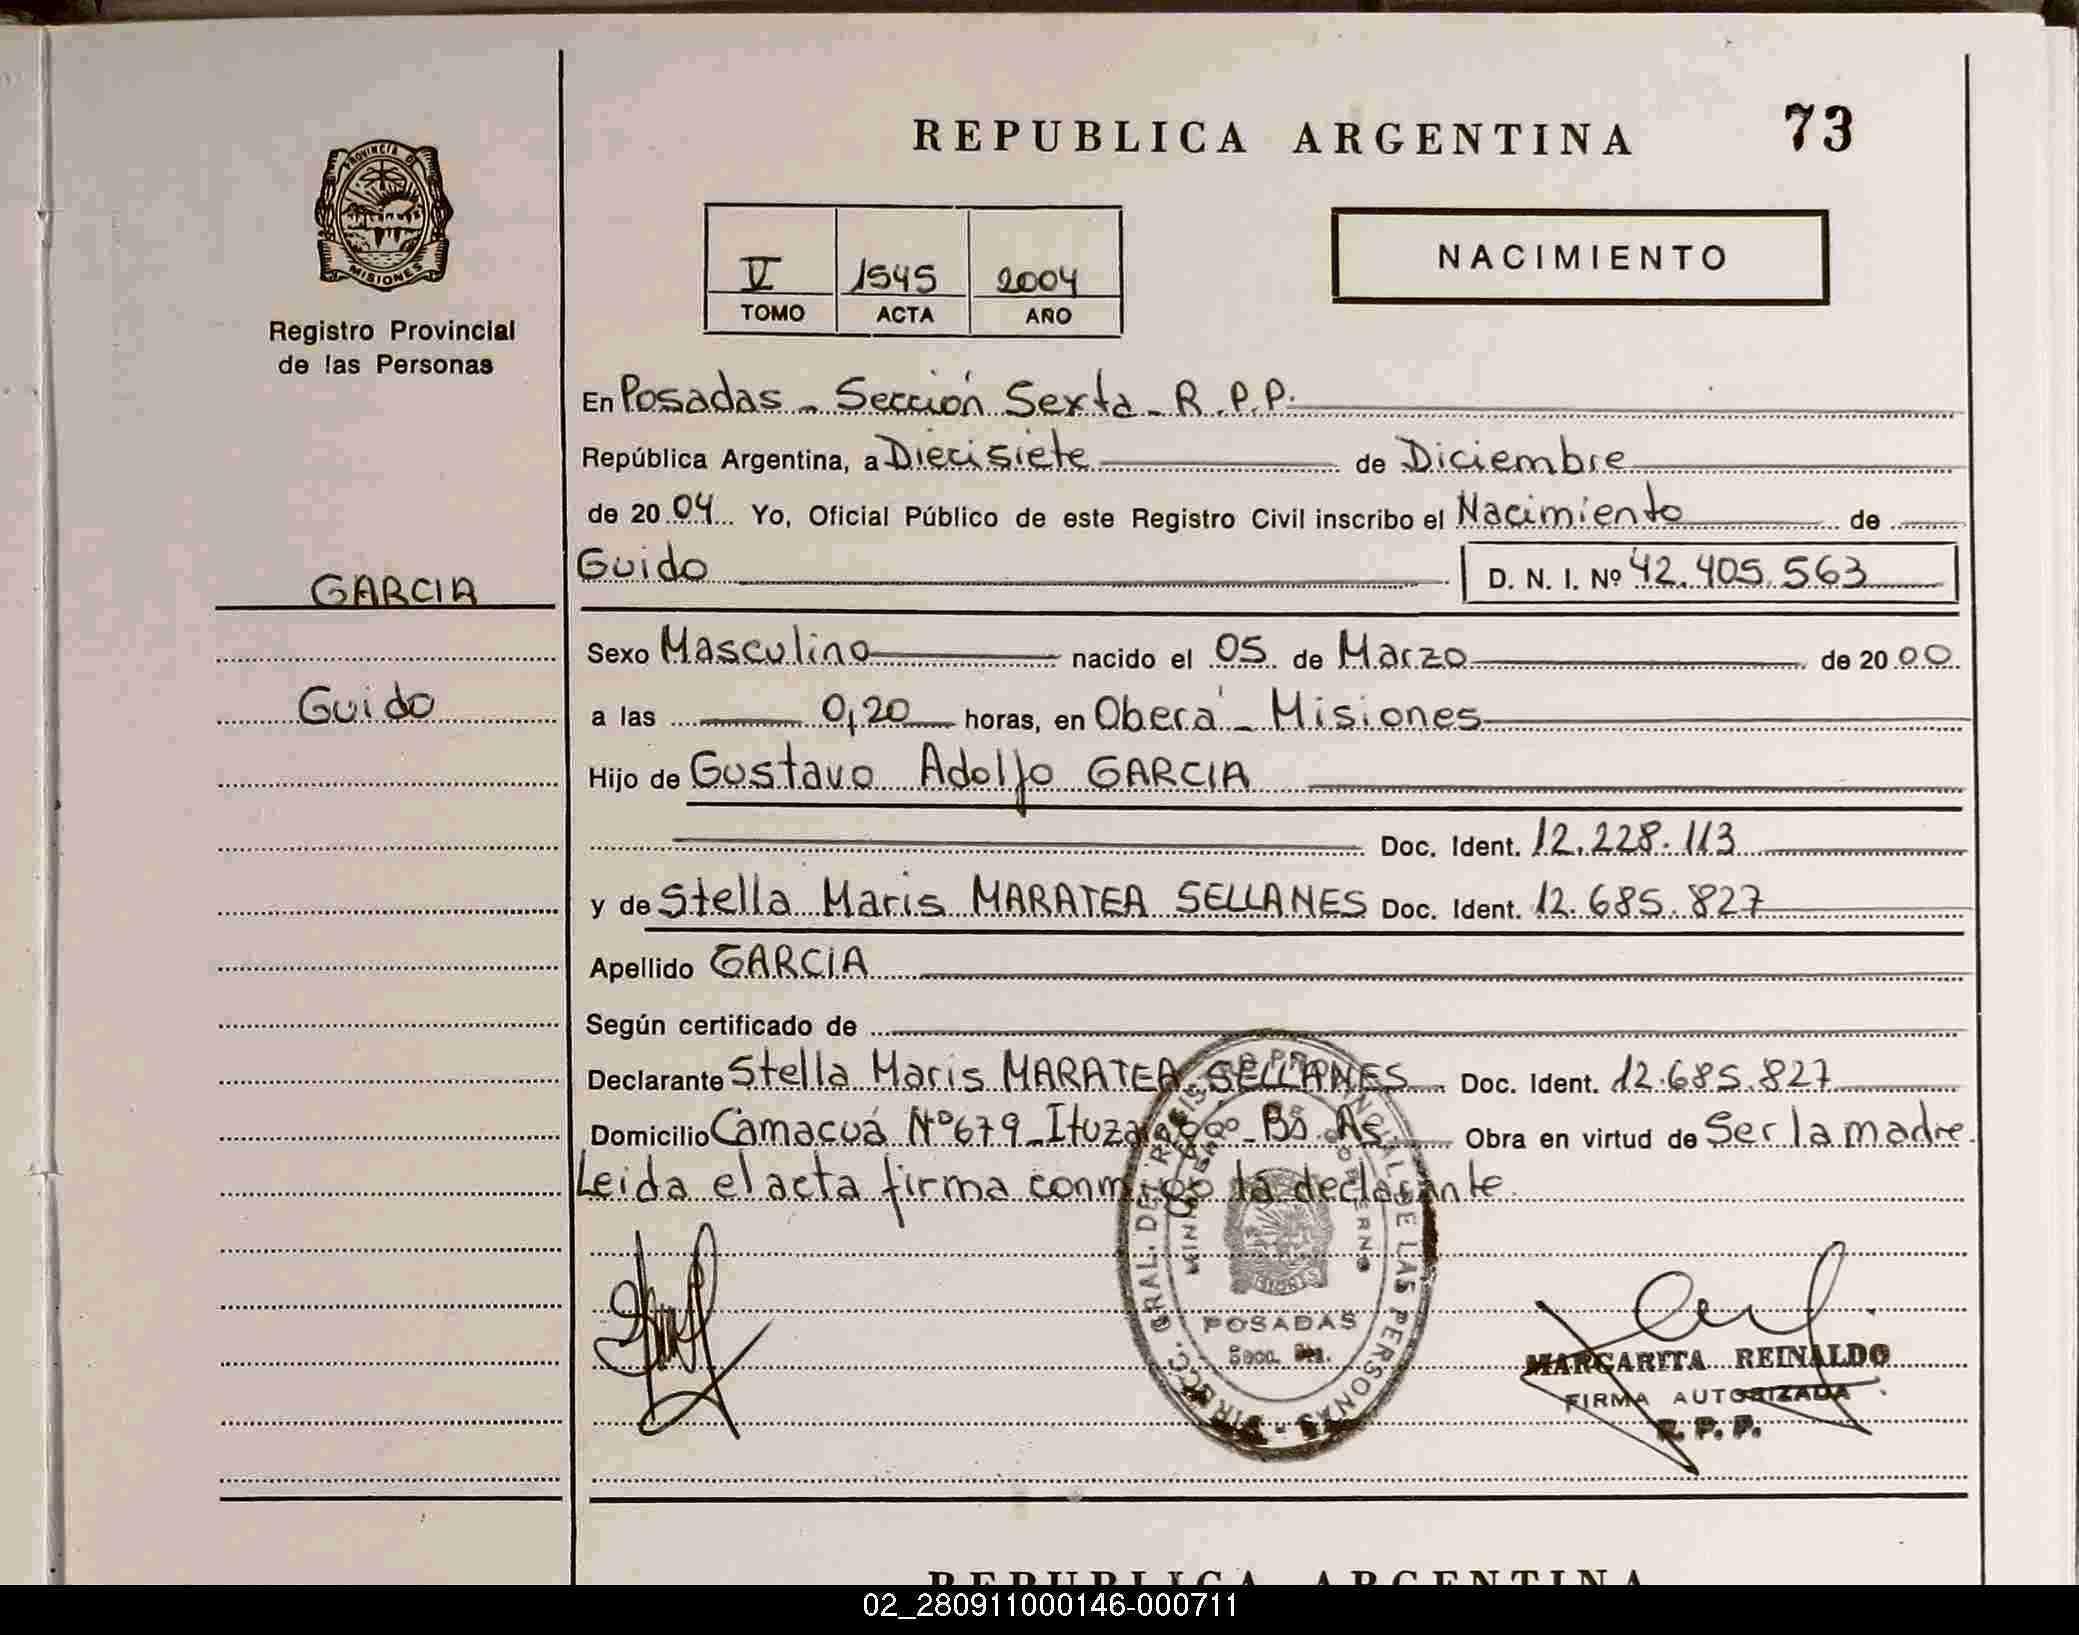 REPUBLICA ARGENTINA
73
PROVINCIA DE
MISIONES
Registro Provincial
de las Personas
V 1545 2004
TOMO ACTA AÑO
NACIMIENTO
En Posadas - Sección Sexta - R.P.P.
República Argentina, a Diecisiete de Diciembre
de 2004 Yo, Oficial Público de este Registro Civil inscribo el Nacimiento de
Guido D. N. I. Nº 42.405.563
GARCIA
Sexo Masculino nacido el 05 de Marzo de 2000
Guido
a las 0,20 horas, en Oberá - Misiones
Hijo de Gustavo Adolfo GARCIA
Doc. Ident. 12.228.113
y de Stella Maris MARATEA SELLANES Doc. Ident. 12.685.827
Apellido GARCIA
Según certificado de
Declarante Stella Maris MARATEA SELLANES Doc. Ident. 12.685.827
Domicilio Camacuá Nº 679 - Ituzaingo - Bs. As. Obra en virtud de Ser la madre
Leida el acta firma conmigo la declarante
POSADAS
MARGARITA REINALDO
FIRMA AUTORIZADA
R. P. P.
REPUBLICA ARGENTINA
02_280911000146-000711